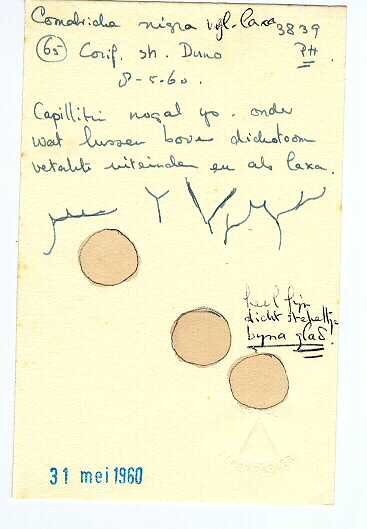 Comatricha nigra vgl. laxa 3839
65 Conif. st. Duno PH.
8-5-60.
Capillitiu nogal onder
wat lussen boven dichotoom
vertakte uiteinden en als laxa.
heel fijn
dicht
byna glad!
31 mei 1960